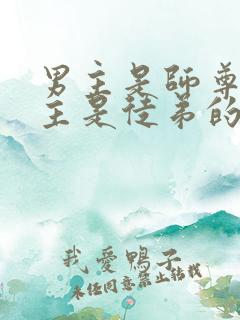 男主是師尊
主是徒弟的
我愛鴨子
未經同意禁止轉載